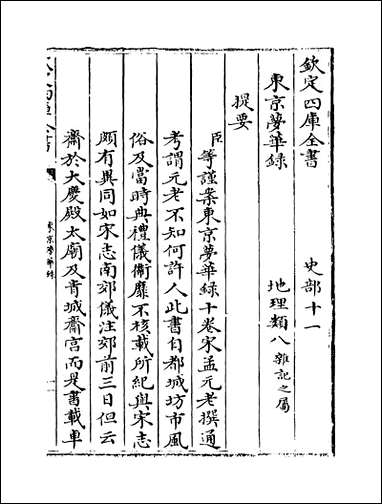 欽定四庫全書　史部十一
東京夢華錄　地理類八雜記之屬
提要
臣等謹案東京夢華録十卷宋孟元老撰通
考謂元老不知何許人此書自都城坊市風
俗及當時典禮儀衛靡不核載所紀與宋志
頗有異同如宋志南郊儀注郊前三日但云
齋於大慶殿太廟及青城齋宮而是書載車
東京夢華錄